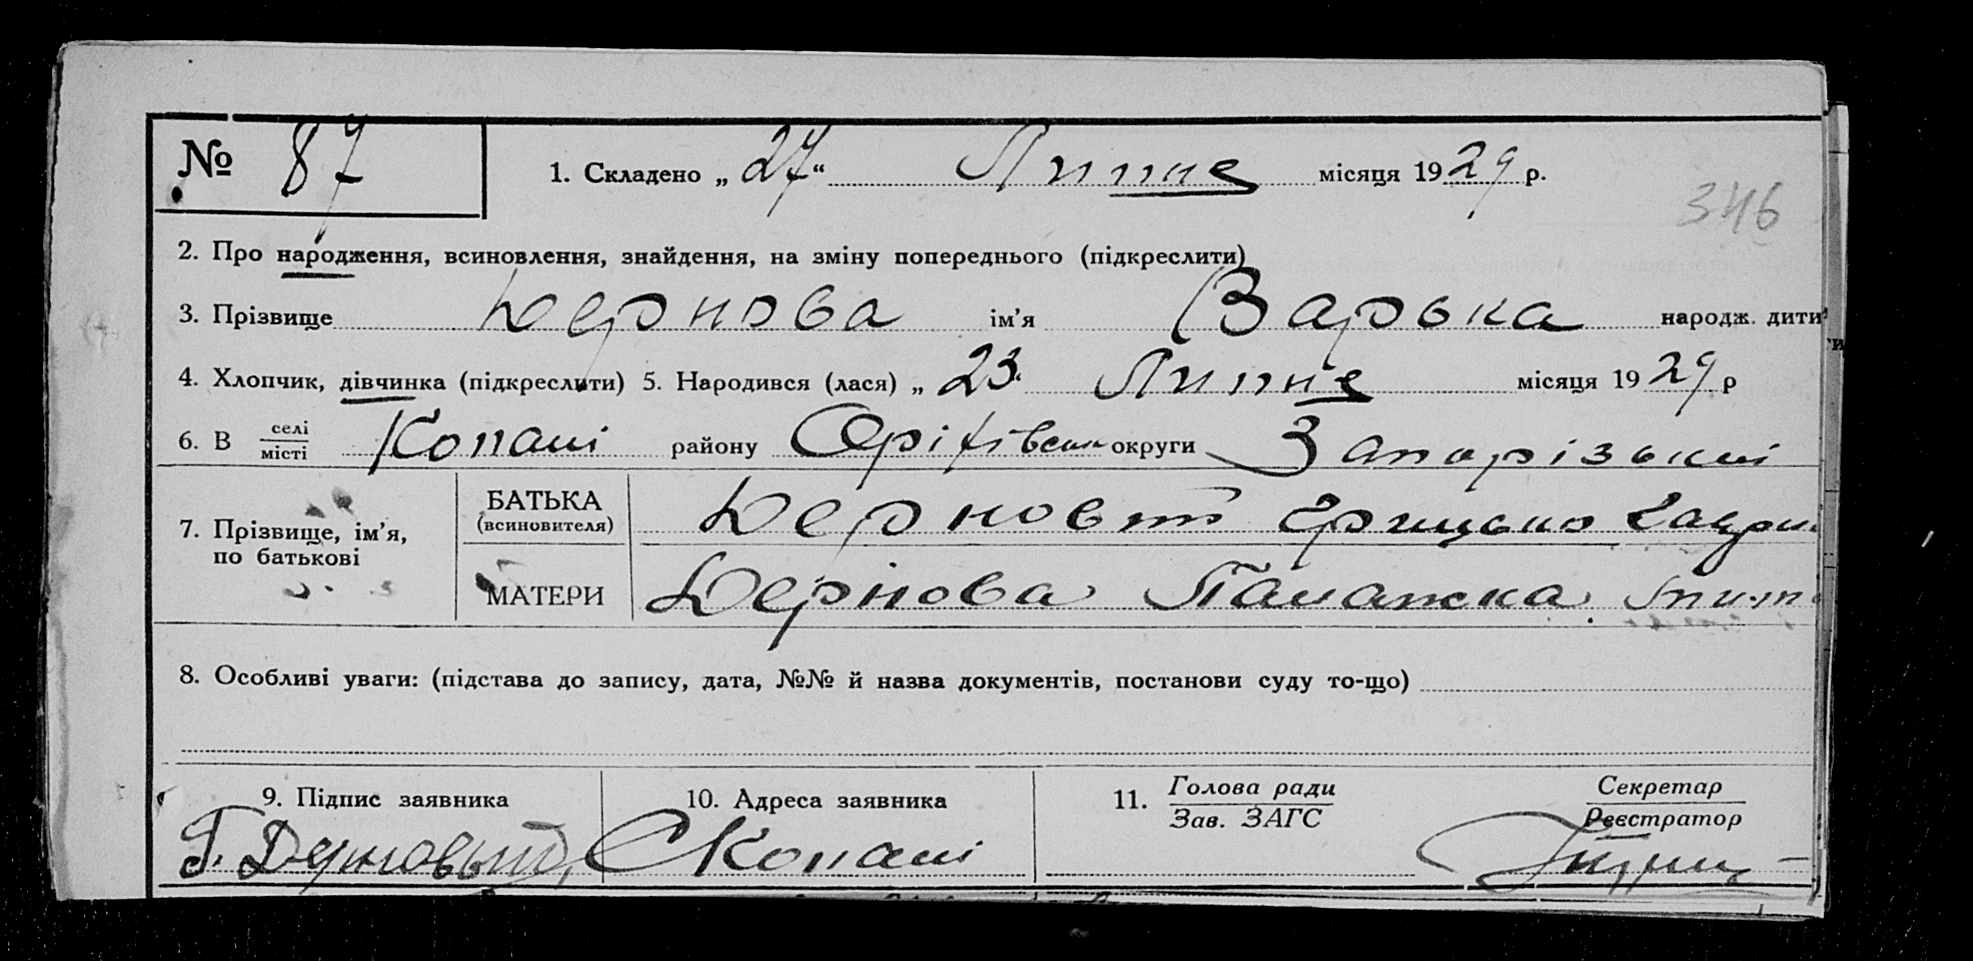 № 87 1. Складено „27“ Липня місяця 1929 р.
346
2. Про народження, всиновлення, знайдення, на зміну попереднього (підкреслити)
3. Прізвище Дернова ім’я Варька народж. дити
4. Хлопчик, дівчинка (підкреслити) 5. Народився (лася) „23“ Липня місяця 1929 р
6. В селі місті Копані району Оріхівськ округи Запорізький
7. Прізвище, ім’я, по батькові
БАТЬКА (всиновителя) Дерновий Грицько Гаври
МАТЕРИ Дернова Палажка
8. Особливі уваги: (підстава до запису, дата, №№ й назва документів, постанови суду то-що)
9. Підпис заявника 10. Адреса заявника 11. Голова ради Секретар
Зав. ЗАГС Реєстратор
Г. Дерновый С Копані